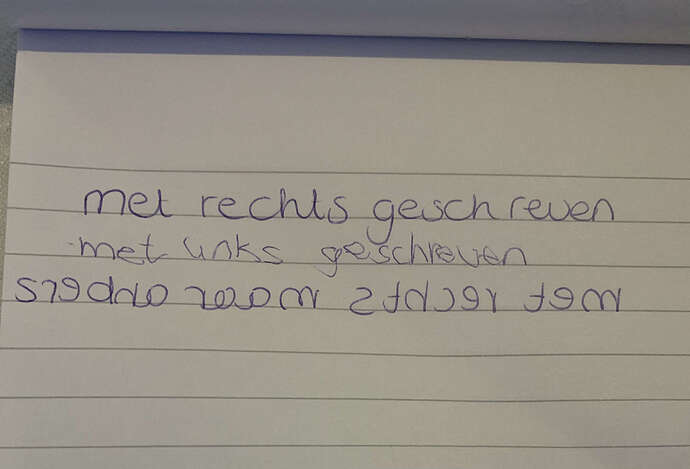 met rechts geschreven
met links geschreven
met rechts maar anders